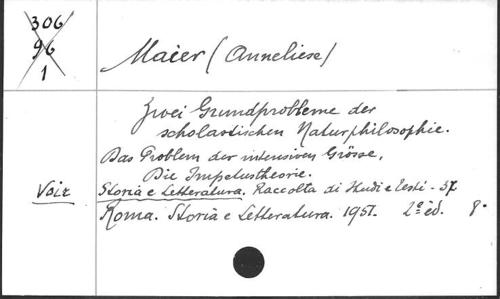 306
96
1
Maier (Anneliese)
Zwei Grundprobleme der
scholastischen Naturphilosophie.
Das Problem der intensiven Grösse,
Die Impetustheorie.
Voir Storia e Letteratura. Raccolta di Studi e Testi - 37
Roma. Storia e Letteratura. 1951. 2e éd. 8°